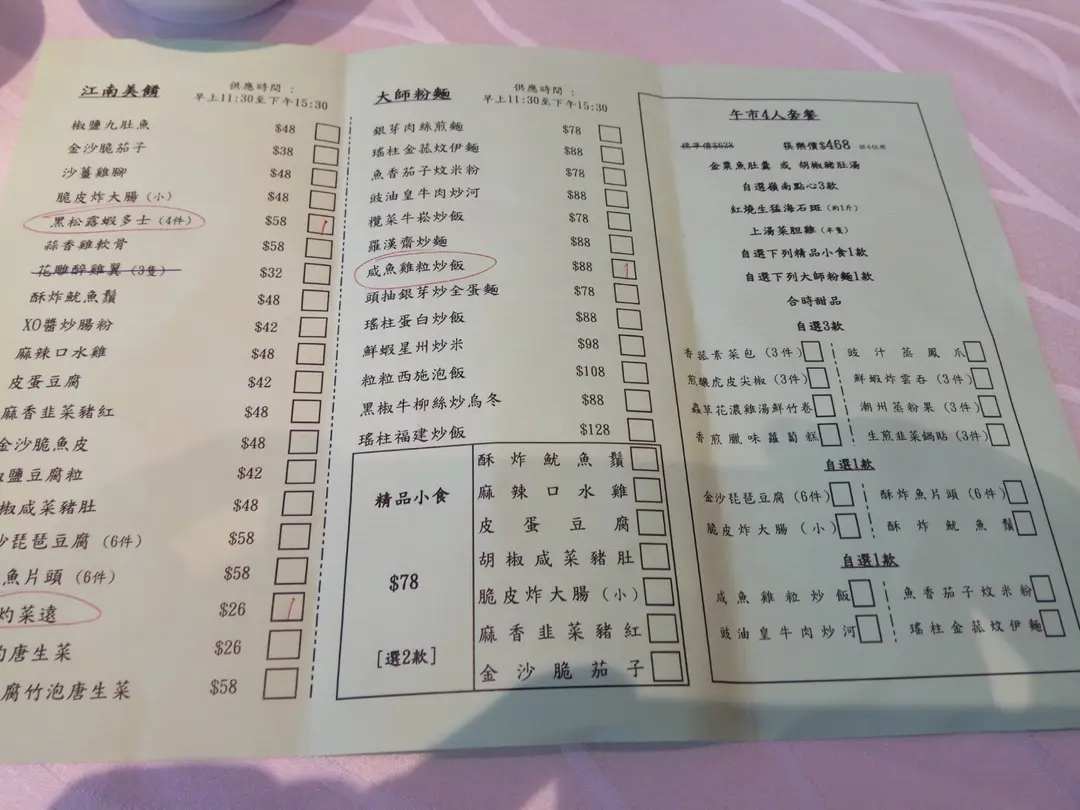 江南美饌
供應時間：
早上11:30至下午15:30
椒鹽九肚魚 $48
金沙脆茄子 $38
沙薑雞腳 $48
脆皮炸大腸（小） $48
黑松露蝦多士（4件） $58 1
蒜香雞軟骨 $58
花雕醉雞翼（3隻） $32
酥炸魷魚鬚 $48
XO醬炒腸粉 $42
麻辣口水雞 $48
皮蛋豆腐 $42
麻香韭菜豬紅 $48
金沙脆魚皮 $48
鹽豆腐粒 $42
椒咸菜豬肚 $48
沙琵琶豆腐（6件） $58
魚片頭（6件） $58
灼菜遠 $26 1
灼唐生菜 $26
腐竹泡唐生菜 $58
大師粉麵
供應時間：
早上11:30至下午15:30
銀芽肉絲煎麵 $78
瑤柱金菰炆伊麵 $88
魚香茄子炆米粉 $78
豉油皇牛肉炒河 $88
欖菜牛崧炒飯 $78
羅漢齋炒麵 $88
咸魚雞粒炒飯 $88 1
頭抽銀芽炒全蛋麵 $78
瑤柱蛋白炒飯 $88
鮮蝦星州炒米 $98
粒粒西施泡飯 $108
黑椒牛柳絲炒烏冬 $88
瑤柱福建炒飯 $128
精品小食
$78
[選2款]
酥炸魷魚鬚
麻辣口水雞
皮蛋豆腐
胡椒咸菜豬肚
脆皮炸大腸（小）
麻香韭菜豬紅
金沙脆茄子
午市4人套餐
標準價$628 筷樂價$468 供4位用
金粟魚肚羹 或 胡椒豬肚湯
自選嶺南點心3款
紅燒生猛海石斑（約1斤）
上湯菜胆雞（半隻）
自選下列精品小食1款
自選下列大師粉麵1款
合時甜品
自選3款
香菰素菜包（3件） 豉汁蒸鳳爪
煎釀虎皮尖椒（3件） 鮮蝦炸雲吞（3件）
蟲草花濃雞湯鮮竹卷 潮州蒸粉果（3件）
香煎臘味蘿蔔糕 生煎韭菜鍋貼（3件）
自選1款
金沙琵琶豆腐（6件） 酥炸魚片頭（6件）
脆皮炸大腸（小） 酥炸魷魚鬚
自選1款
咸魚雞粒炒飯 魚香茄子炆米粉
豉油皇牛肉炒河 瑤柱金菰炆伊麵